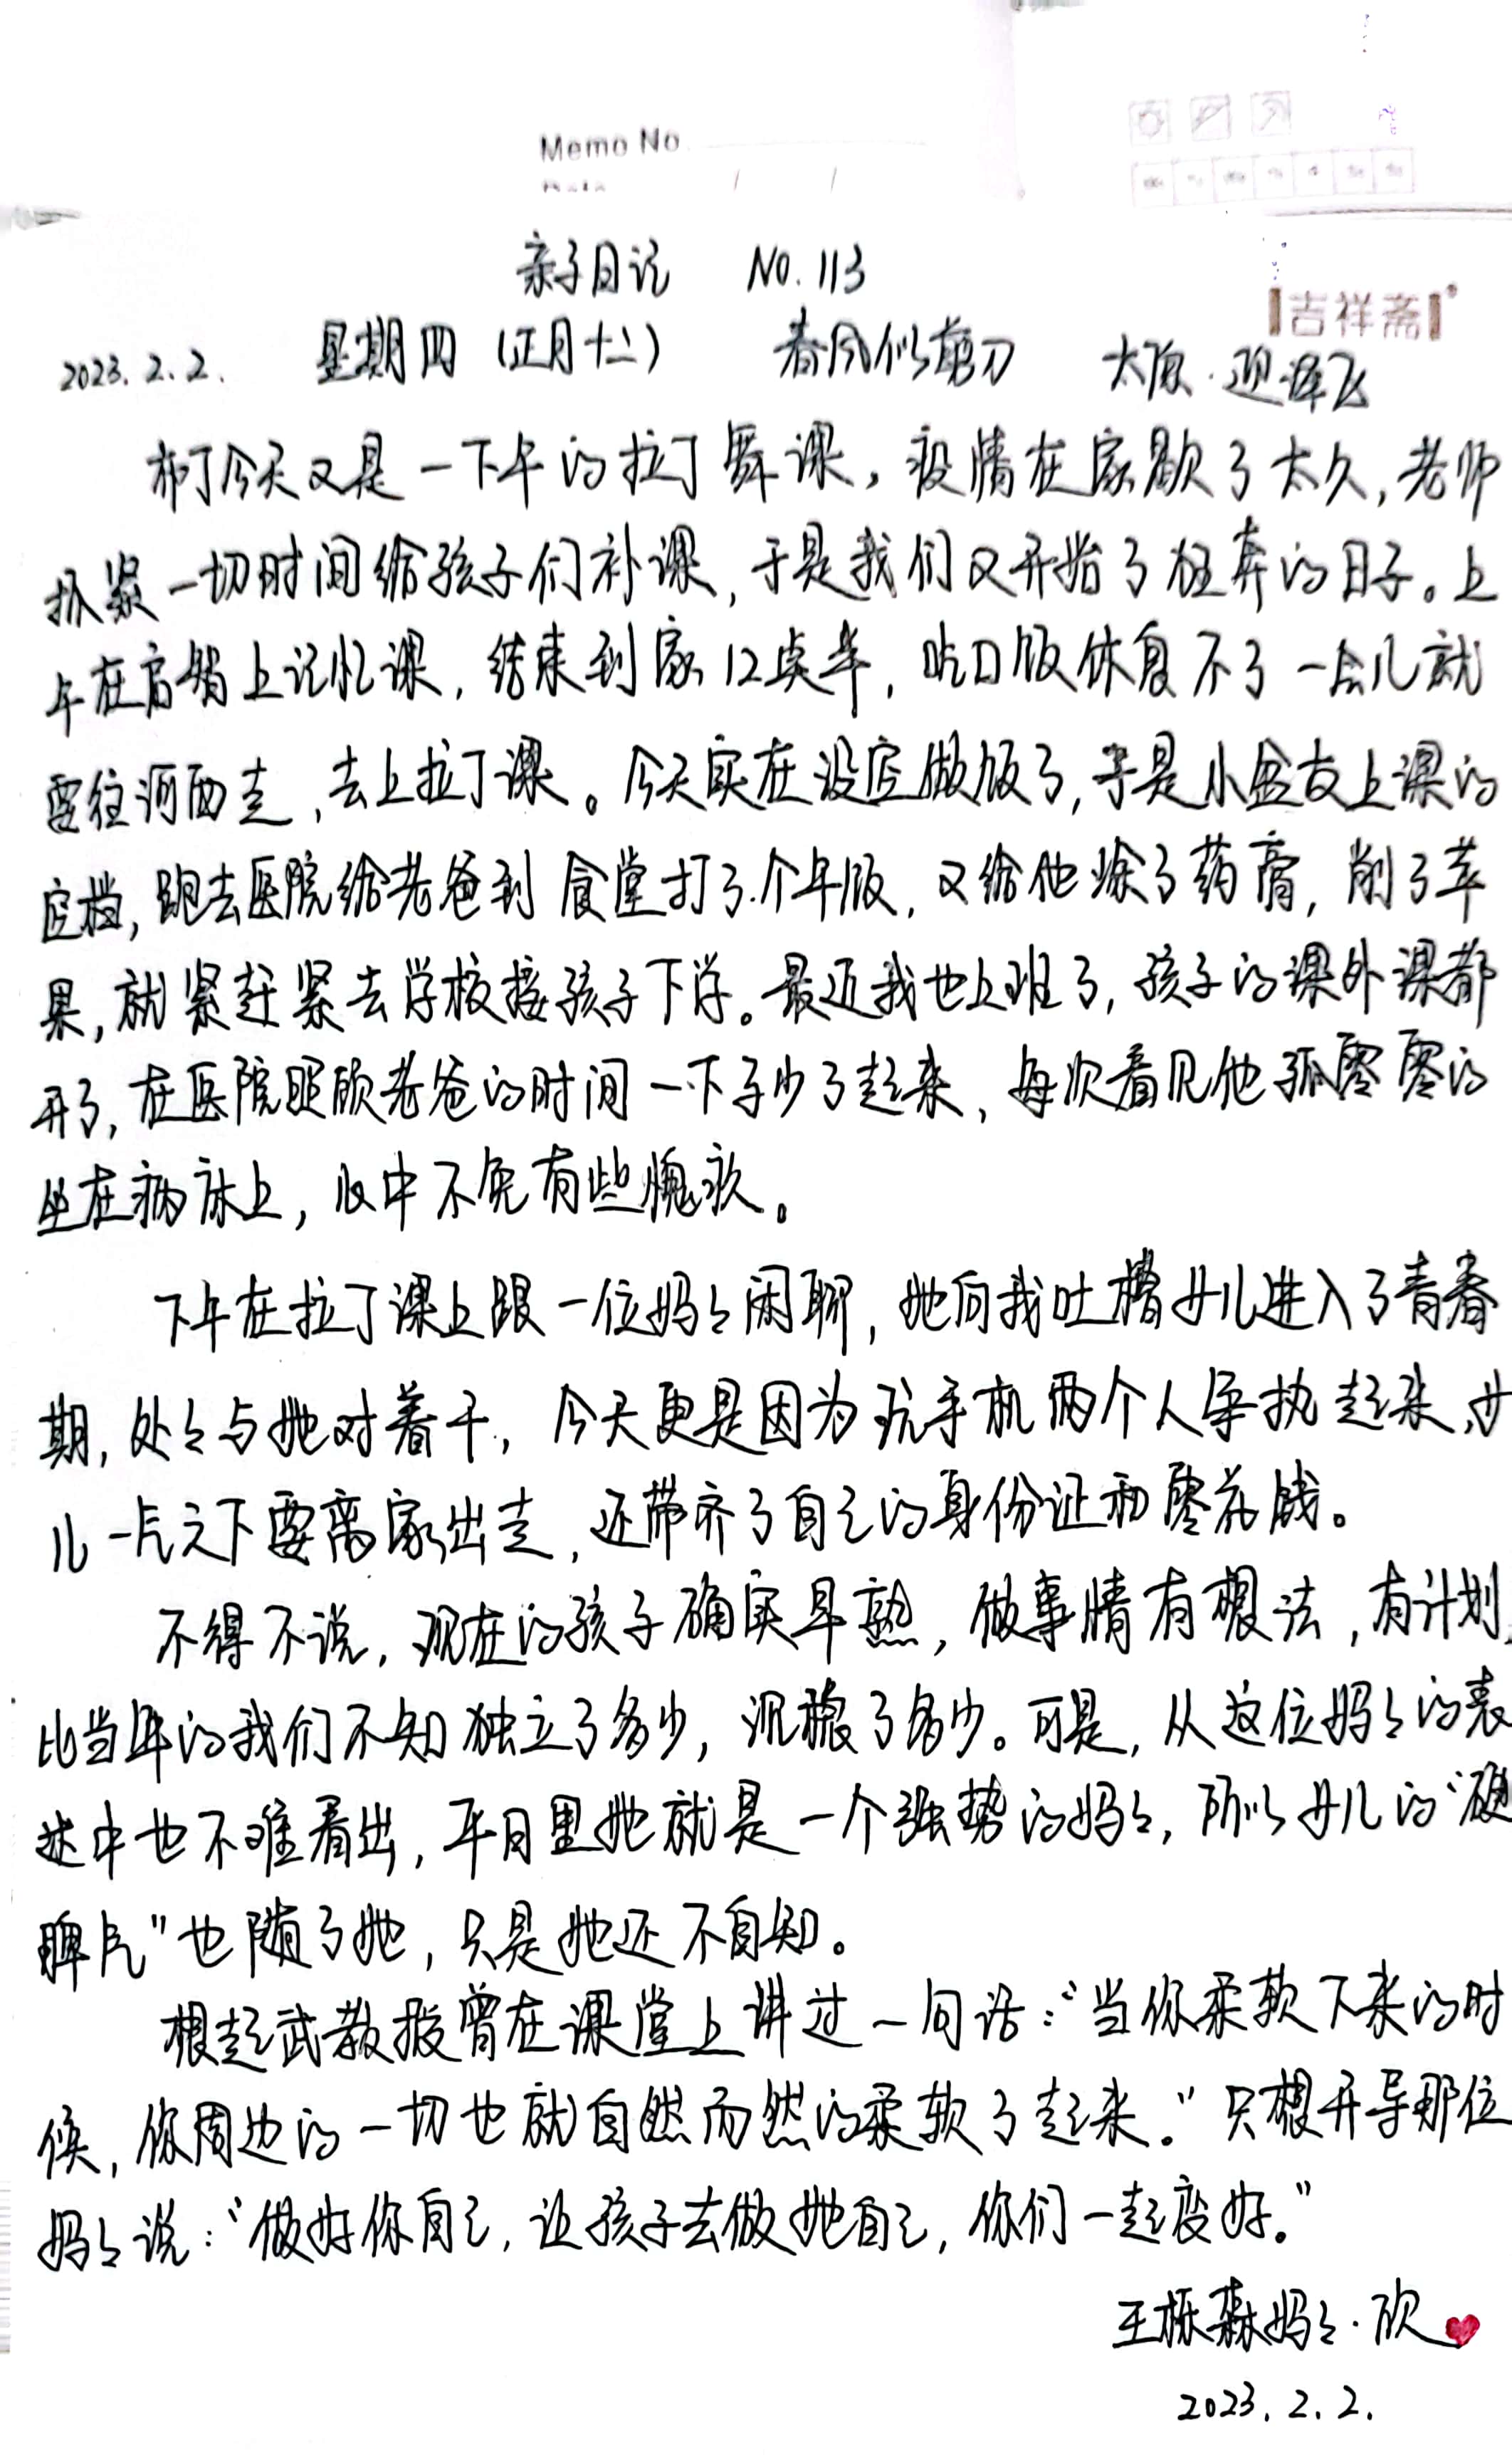 Memo No.
Date / /
亲子日记 No.113
吉祥斋
2023.2.2. 星期四(正月十二) 春风似剪刀 太原·迎泽区
布丁今天又是一下午的拉丁舞课,疫情在家歇了太久,老师
抓紧一切时间给孩子们补课,于是我们又开始了狂奔的日子。上
午在 上记忆课,结束到家12点半,吃口饭休息不了一会儿就
要往河西走,去上拉丁课。今天实在没空做饭了,于是小盆友上课的
空档,跑去医院给老爸到食堂打了个午饭,又给他涂了药膏,削了苹
果,就紧赶紧去学校接孩子下学。最近我也上班了,孩子的课外课都
开了,在医院照顾老爸的时间一下子少了起来,每次看见他孤零零的
坐在病床上,心中不免有些愧疚。
下午在拉丁课上跟一位妈々闲聊,她向我吐槽女儿进入了青春
期,处々与她对着干,今天更是因为玩手机两个人争执起来,女
儿一气之下要离家出走,还带齐了自己的身份证和零花钱。
不得不说,现在的孩子确实早熟,做事情有想法,有计划,
比当年的我们不知独立了多少,沉稳了多少。可是,从这位妈々的表
述中也不难看出,平日里她就是一个强势的妈々,所以女儿的“硬
脾气”也随了她,只是她还不自知。
想起武教授曾在课堂上讲过一句话:“当你柔软下来的时
候,你周边的一切也就自然而然的柔软了起来。”只想开导那位
妈々说:“做好你自己,让孩子去做她自己,你们一起变好。”
王栎森妈々·欣
2023.2.2.